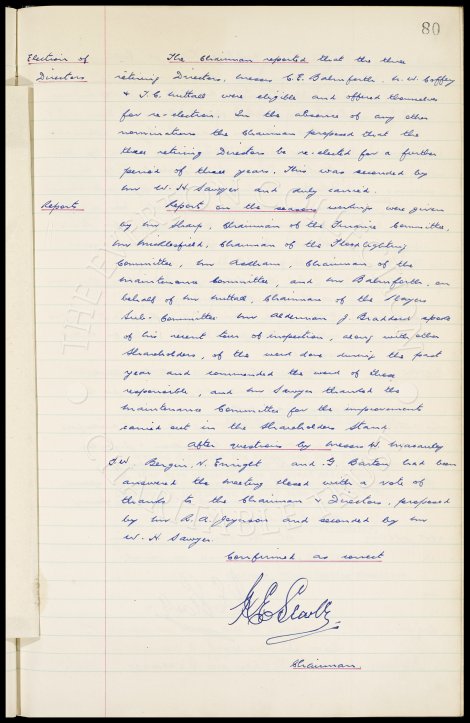 80
Election of
Directors
The Chairman reported that the three
retiring Directors, Messrs C.E. Balmforth, W. W. Coffey
& T.C. Nuttall were eligible and offered themselves
for re-election. In the absence of any other
nominations the Chairman proposed that the
three retiring Directors be re-elected for a further
period of three years. This was seconded by
Mr W. H Sawyer and duly carried.
Reports
Reports on the seasons workings were given
by Mr Sharp, Chairman of the Finance Committee,
Mr Micklesfield, Chairman of the Floodlighting
Committee, Mr Aedham, Chairman of the
Maintenance Committee, and Mr Balmforth, on
behalf of Mr Nuttall, Chairman of the Players
Sub-Committee Mr Alderman J Braddock spoke
of his recent tour of inspection, along with other
Shareholders, of the work done during the past
year and commended the work of those
responsible, and Mr Sawyer thanked the
Maintenance Committee for the improvements
carried out in the Shareholders Stand.
After questions by Messrs H.
W. Bergin, N. Enright and G. Barton had been
answered the meeting closed with a vote of
thanks to the Chairman & Directors, proposed
by Mr R. A. Joynson and seconded by Mr
W. H Sawyer.
Confirmed as correct
Chairman